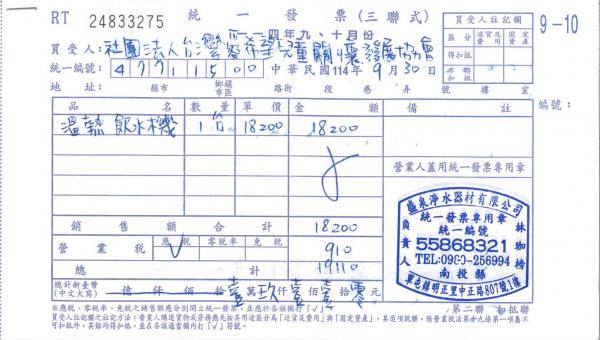 RT 24833275
統一發票(三聯式)
一一四年九、十月份
9-10
買受人註記欄
區分 進貨及費用 固定資產
得扣抵
不得扣抵
買受人:社團法人台灣愛希望兒童關懷發展協會
統一編號: 47711500 中華民國114年9月30日
地址: 縣市 鄉鎮市區 路街 段 巷 弄 號 樓 室
編號:
品名 數量 單價 金額 備註
溫熱飲水機 1台 18200 18200
營業人蓋用統一發票專用章
銷售額合計 18200
營業稅 應稅 √ 零稅率 免稅 910
總計 19110
總計新臺幣(中文大寫) 億 仟 佰 拾 壹萬 玖仟 壹佰 壹拾 零元
盛泉淨水器材有限公司
統一發票專用章
統一編號
55868321
TEL:0980-256994
南投縣
草屯鎮明正里中正路807號1樓
負責人
※應稅、零稅率、免稅之銷售額應分別開立統一發票,並應於各該欄打「√」。
第二聯 扣抵聯
買受人註記欄之註記方法:營業人購進貨物或勞務應先按其用途區分為「進貨及費用」與「固定資產」,其進項稅額,除營業稅法第十九條第一項屬不
可扣抵外,其餘均得扣抵,並在各該適當欄內打「√」符號。